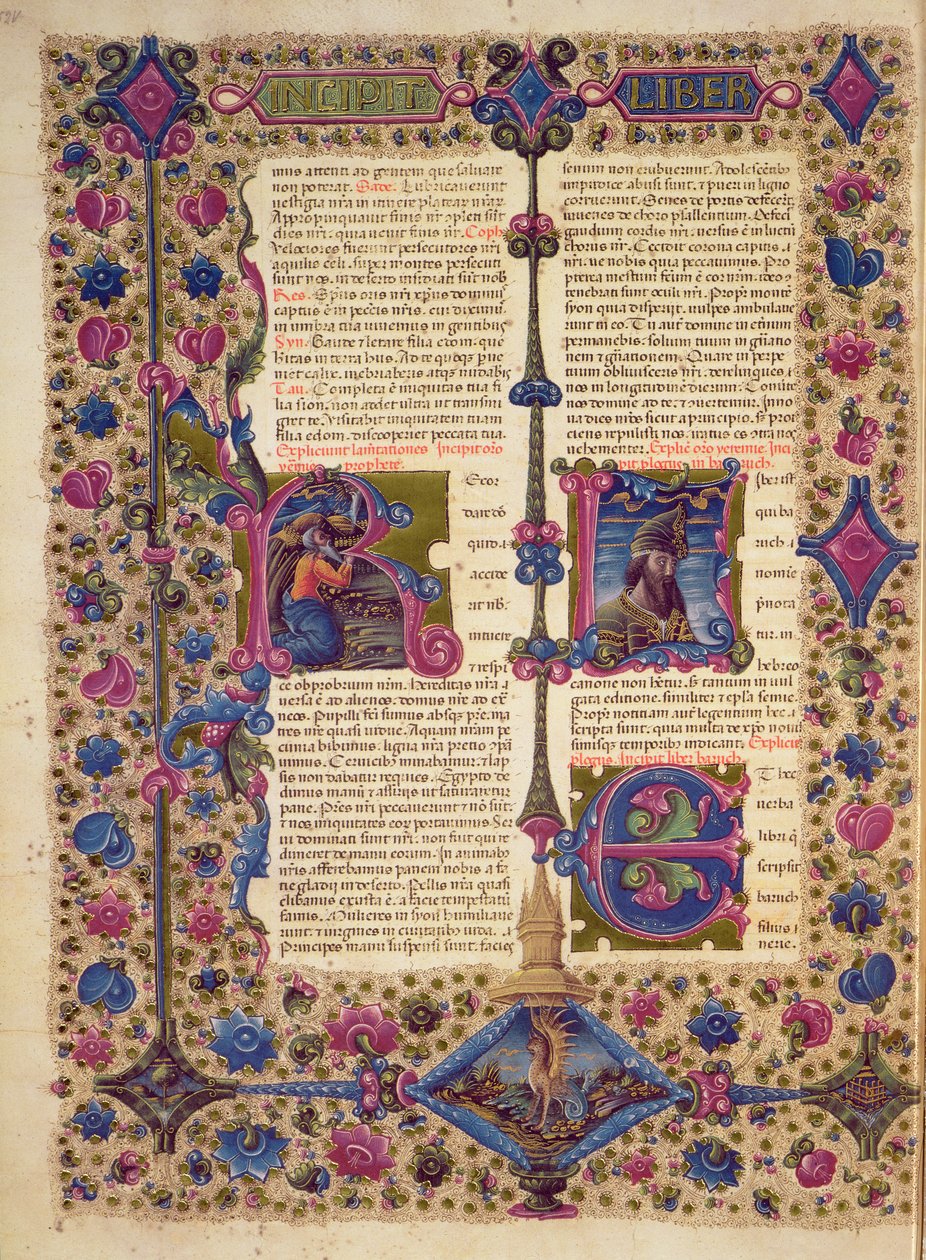 INCIPIT LIBER
mus attenti ad gentem que saluare
non poterat. Sade. Lubricauerunt
vestigia nr̄a in itinere platear nr̄ar.
Appropinquauit finis nr̄.
dies nr̄i, quia uenit finis nr̄. Coph
Velociores fuerunt persecutores nr̄i
aquilis celi. super montes persecuti
sunt nos. in deserto insidiati sūt nob
Res. Sp̄us oris nr̄i xp̄us dominus
captus ē in peccīs nr̄is. cui diximus
in umbra tua uiuemus in gentibus
Syn. Gaude et letare filia edom. que
hītas in terra hus. Ad te quoqz
calix. inebriaberis atqz nudaberis
Tau. Completa ē iniquitas tua fi
lia sion. non addet ultra ut transmi
gret te. Visitabit iniquitatem tuam
filia edom. discooperiet peccata tua.
Expliciunt lam̄tationes Incipit oro
prophete.
Recor
dare
quid
accide
rit nb.
intuere
⁊ respi
ce obprobrium nr̄m. Hereditas nr̄a
uersa ē ad alienos. domus nr̄e ad ex
neos. Pupilli sumus absqz pr̄e. ma
tres nr̄e quasi uidue. Aquam nr̄am pe
cunia bibimus. ligna nr̄a pretio
Ceruicibus minabamur. ⁊ lap
sis non dabatur reques. Egypto de
dimus manū ⁊ assiriis ut saturaremur
pane. Pr̄es nr̄i peccauerunt ⁊ nō sūt.
⁊ nos iniquitates portauimus. Ser
ui dominati sunt nr̄i. non fuit qui re
dimeret de manu eorum. In animabus
nr̄is afferebamus panem nobis a fa
cie gladii in deserto. Pellis nr̄a quasi
clibanus exusta ē. a facie tempestatū
famis. Mulieres in syon humiliaue
runt. ⁊ uirgines in ciuitatibus iuda.
Principes manu suspensi sunt. facies
senum non erubuerunt. Adolescentibus
impudice abusi sunt. ⁊ pueri in ligno
corruerunt. Senes de portis defecerūt
iuuenes de choro psallentium. Defec
gaudium cordis nr̄i. uersus ē in luctū
chorus nr̄. Cecidit corona capitis
nr̄i. ue nobis quia peccauimus. Pro
pterea mestum ē cor nr̄m. ideo
tenebrati sunt oculi nr̄i. Propter montē
syon quia disperiit. uulpes ambulaue
runt in eo. Tu autē domine in eternū
permanebis. solium tuum in gn̄atio
nem ⁊ gn̄ationem. Quare in perpe
tuum obliuisceris nr̄i. derelinques
nos in longitudinē dierum. Conuerte
nos domine ad te ⁊ cōuertemur. Inno
ua dies nr̄os sicut a principio. Sz proi
ciens repulisti nos. iratus es contra nos
uehementer. Explic̄ oro yeremie. Inci
pit plogus in baruch.
Liber ist
qui ba
ruch
nomine
p̄nota
tur. in
hebreo
canone non hētur. sz tantum in uul
gata editione. similiter ⁊ epl̄a ieremie.
Propter notitiam autē legentium hec
scripta sunt. quia multa de xp̄o noui
simisqz temporibus indicant. Explicit
plogus. Incipit liber baruch.
Et hec
uerba
libri q̄
scripsit
baruch
filius
nerie.